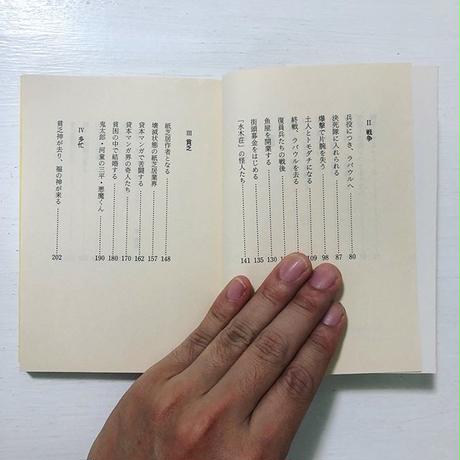 II 戦争
兵役につき、ラバウルへ 80
決死隊に入れられる 87
爆撃で片腕を失う 98
土人とトモダチになる 109
終戦、ラバウルを去る
復員兵たちの戦後
魚屋を開業する 130
街頭募金をはじめる 135
「水木荘」の怪人たち 141
III 貧乏
紙芝居作者となる 148
壊滅状態の紙芝居業界 157
貸本マンガで苦闘する 162
貸本マンガ界の奇人たち 170
貧困の中で結婚する 180
鬼太郎・河童の三平・悪魔くん 190
IV 多忙
貧乏神が去り、福の神が来る 202